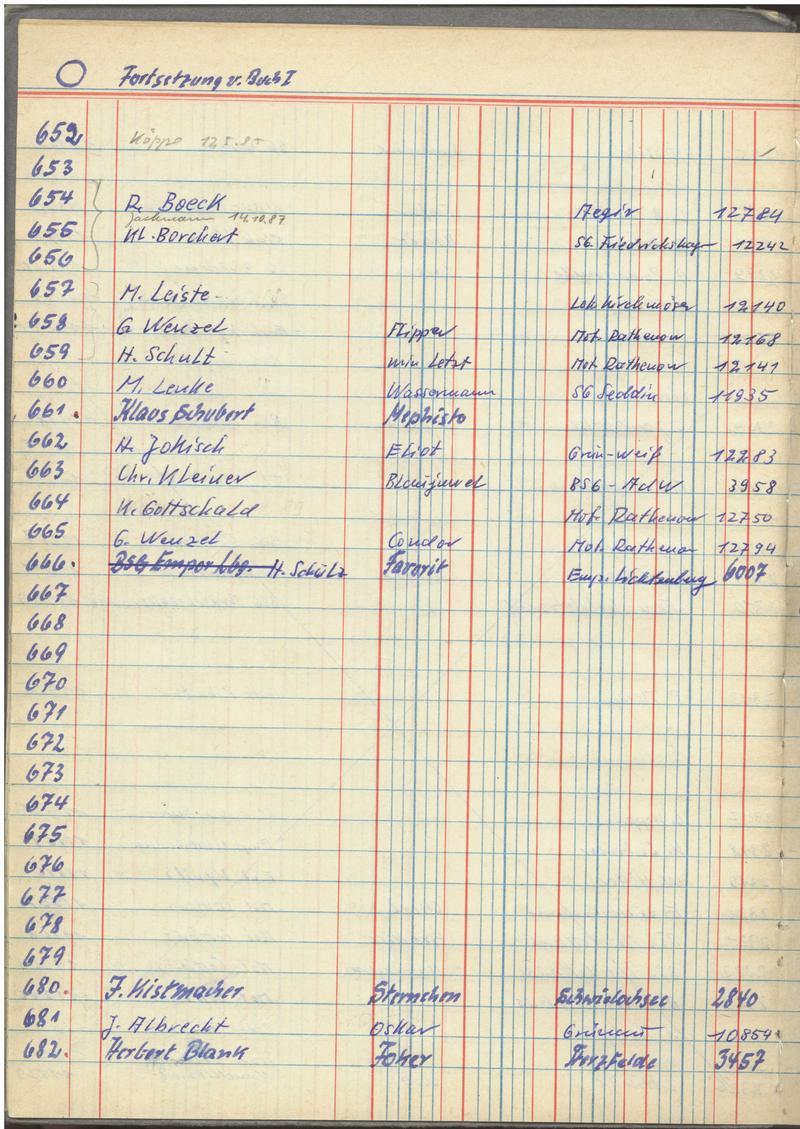 O Fortsetzung v. Buch I
652 Köppe 12.5.85
653
654 R. Boeck Aegir 12784
14.10.87
655 Kl. Borchert SG. Friedrichshag 12242
656
657 M. Leiste Lok Kirchmöser 12140
658 G. Wenzel Flipper Mot. Rathenow 12168
659 H. Schult min Letzt Mot. Rathenow 12141
660 M. Lenke Wassermann SG Seddin 11935
661. Klaus Schubert Mephisto
662 H. Jokisch Eliot Grün-Weiß 12283
663 Chr. Kleiner Blaujuwel BSG - AdW 3958
664 K. Gottschald Mot. Rathenow 12750
665 G. Wenzel Condor Mot. Rathenow 12794
666. BSG Empor Lbg. H. Schülz Favorit Emp. Lichtenberg 6007
667
668
669
670
671
672
673
674
675
676
677
678
679
680. F. Kistmacher Sternchen Schwielochsee 2840
681 J. Albrecht Oskar Grünau 10854
682. Herbert Blank Herzfelde 3457